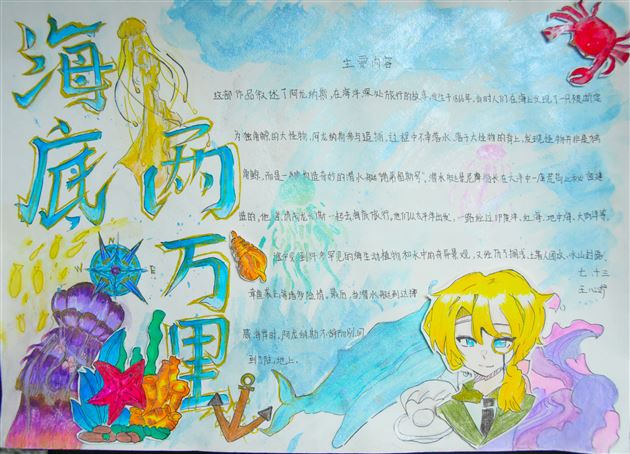 海底两万里
主要内容
这部作品叙述了阿龙纳斯,在海洋深处旅行的故事,发生于1866年,当时人们在海上发现了一只被断定
为独角鲸的大怪物,阿龙纳斯参与追捕,过程中不幸落水,落于大怪物的背上,发现怪物并非是
角鲸,而是一构造奇妙的潜水艇"鹦鹉螺斯号",潜水艇是尼摩船长在大洋中一座荒岛上秘密建
造的,他邀请阿龙纳斯一起去海底旅行,他们从太平洋出发,一路经过印度洋,红海,地中海,大西洋等,
途中见到许多罕见的海生动植物和水中的奇异景观,又经历了搁浅,土著人围攻,冰山封路,
章鱼袭击等诸多险情,最后,当潜水艇到达挪
威海岸时,阿龙纳斯不辞而别,回
到了陆地上.
七.十三
W
E